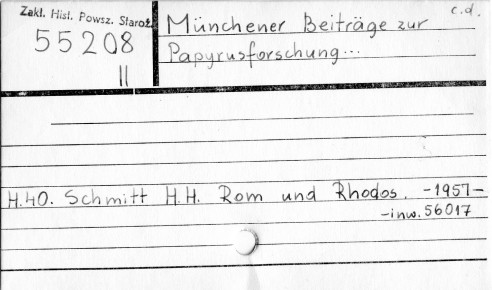 Zakł. Hist. Powsz. Staroż.
55208
II
c.d.
Münchener Beiträge zur
Papyrusforschung...
H.40. Schmitt H.H. Rom und Rhodos. -1957-
-inw. 56017